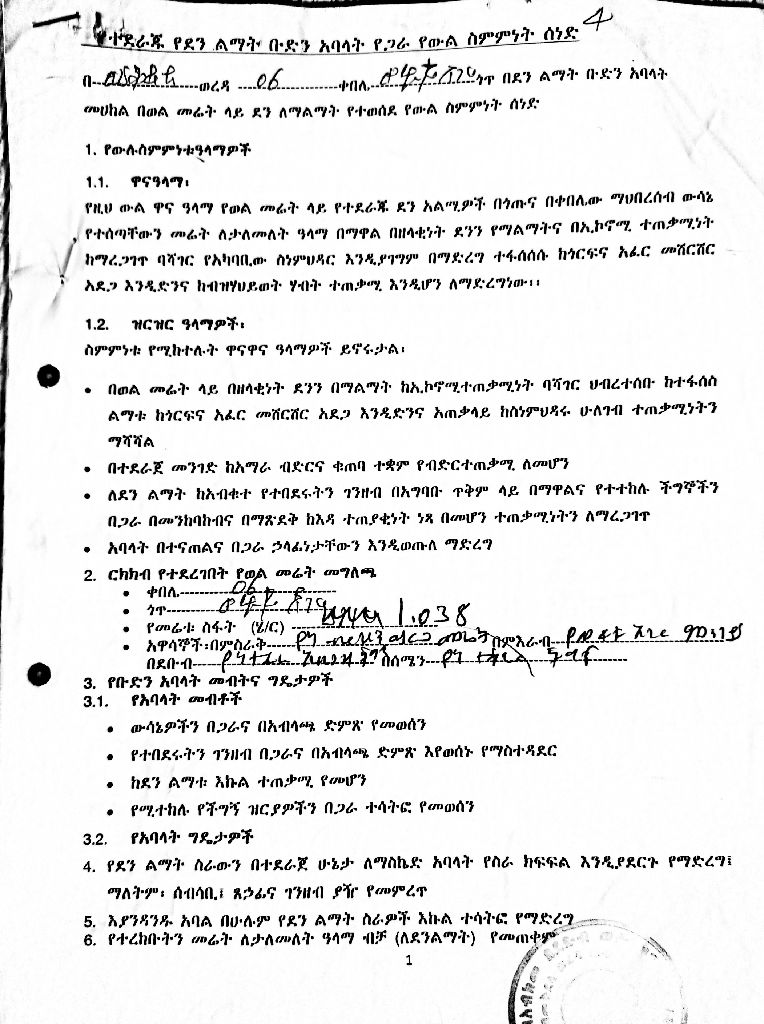 የተደራጁ የደን ልማት ቡድን አባላት የጋራ የውል ስምምነት ሰነድ 4
በ ወረዳ 06 ቀበሌ ጎጥ በደን ልማት ቡድን አባላት
መሀከል በወል መሬት ላይ ደን ለማልማት የተወሰደ የውል ስምምነት ሰነድ
1. የውሉስምምነቱዓላማዎች
1.1. ዋናዓላማ፡
የዚህ ውል ዋና ዓላማ የወል መሬት ላይ የተደራጁ ደን አልሚዎች በጎጡና በቀበሌው ማህበረሰብ ውሳኔ
የተሰጣቸውን መሬት ለታለመለት ዓላማ በማዋል በዘላቂነት ደንን የማልማትና በኢኮኖሚ ተጠቃሚነት
ከማረጋገጥ ባሻገር የአካባቢው ስነምህዳር እንዲያገግም በማድረግ ተፋሰሰሱ ከጎርፍና አፈር መሸርሸር
አደጋ እንዲድንና ከብዝሃህይወት ሃብት ተጠቃሚ እንዲሆን ለማድረግነው፡፡
1.2. ዝርዝር ዓላማዎች፡
ስምምነቱ የሚከተሉት ዋናዋና ዓላማዎች ይኖሩታል፡
• በወል መሬት ላይ በዘላቂነት ደንን በማልማት ከኢኮኖሚተጠቃሚነት ባሻገር ህብረተሰቡ ከተፋሰስ
ልማቱ ከጎርፍና አፈር መሸርሸር አደጋ እንዲድንና አጠቃላይ ከስነምህዳሩ ሁለገብ ተጠቃሚነትን
ማሻሻል
• በተደራጀ መንገድ ከአማራ ብድርና ቁጠባ ተቋም የብድርተጠቃሚ ለመሆን
• ለደን ልማት ከአብቁተ የተበደሩትን ገንዘብ በአግባቡ ጥቅም ላይ በማዋልና የተተከሉ ችግኞችን
በጋራ በመንከባከብና በማጽደቅ ከእዳ ተጠያቂነት ነጻ በመሆን ተጠቃሚነትን ለማረጋገጥ
• አባላት በተናጠልና በጋራ ኃላፊነታቸውን እንዲወጡለ ማድረግ
2. ርክክብ የተደረገበት የወል መሬት መግለጫ
• ቀበሌ 06
• ጎጥ
• የመሬቱ ስፋት (ሄ/ር) 1.038
• አዋሳኞች፡በምስራቅ በምእራብ
በደቡብ በሰሜን
3. የቡድን አባላት መብትና ግዴታዎች
3.1. የአባላት መብቶች
• ውሳኔዎችን በጋራና በአብላጫ ድምጽ የመወሰን
• የተበደሩትን ገንዘብ በጋራና በአብላጫ ድምጽ እየወሰኑ የማስተዳደር
• ከደን ልማቱ እኩል ተጠቃሚ የመሆን
• የሚተከሉ የችግኝ ዝርያዎችን በጋራ ተሳትፎ የመወሰን
3.2. የአባላት ግዴታዎች
4. የደን ልማት ስራውን በተደራጀ ሁኔታ ለማስኬድ አባላት የስራ ክፍፍል እንዲያደርጉ የማድረግ፤
ማለትም፡ ሰብሳቢ፤ ጸኃፊና ገንዘብ ያዥ የመምረጥ
5. እያንዳንዱ አባል በሁሉም የደን ልማት ስራዎች እኩል ተሳትፎ የማድረግ
6. የተረከቡትን መሬት ለታለመለት ዓላማ ብቻ (ለደንልማት) የመጠቀም
1